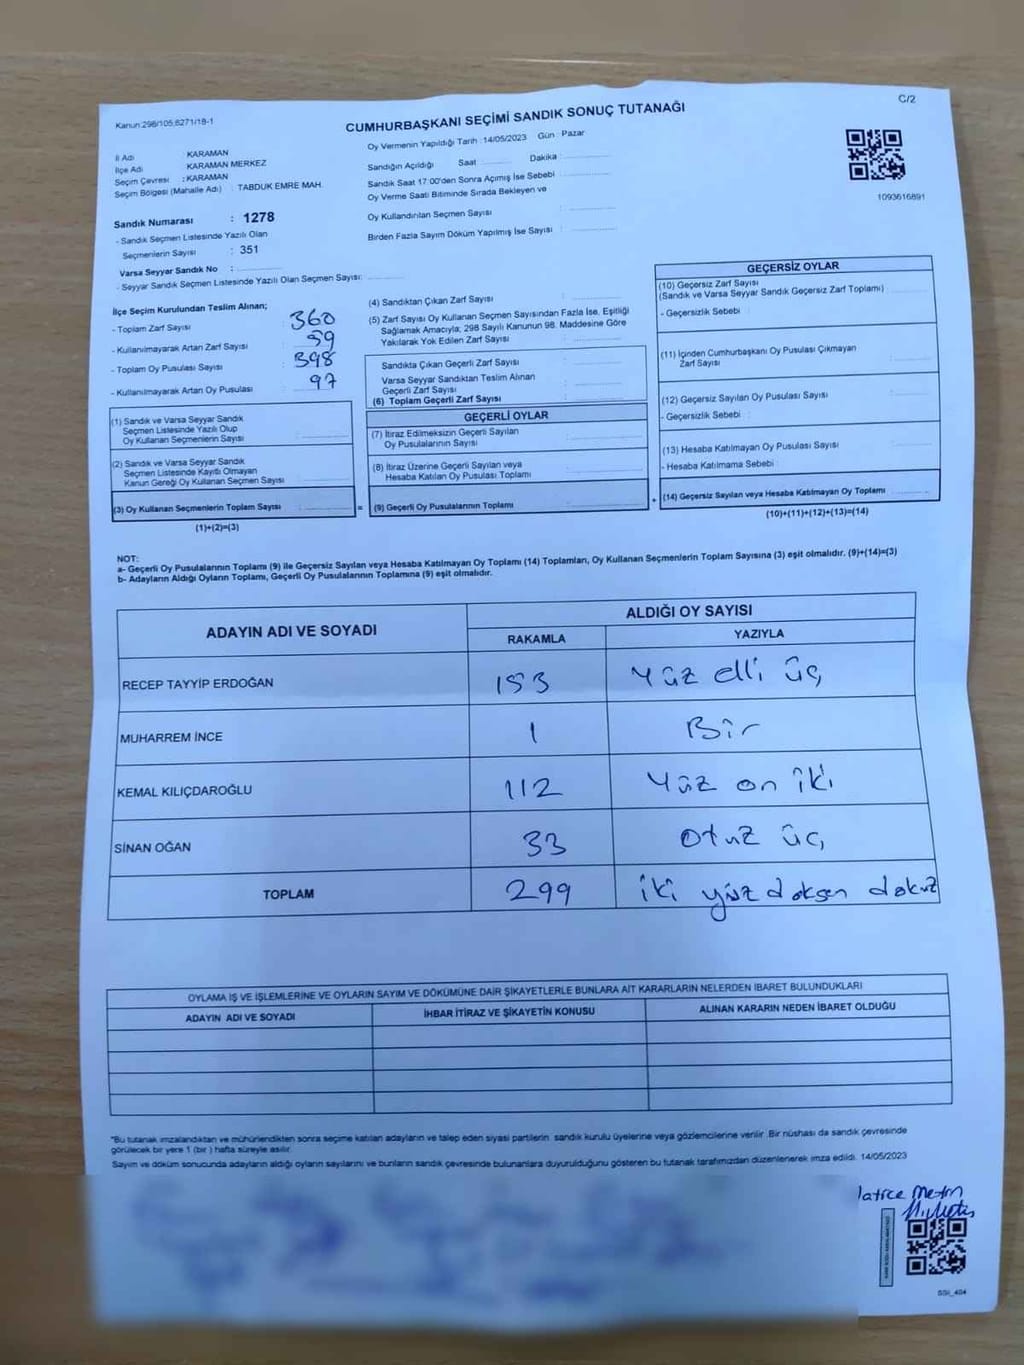 Kanun:298/105,6271/18-1
CUMHURBAŞKANI SEÇİMİ SANDIK SONUÇ TUTANAĞI
C/2
İl Adı : KARAMAN
İlçe Adı : KARAMAN MERKEZ
Seçim Çevresi : KARAMAN
Seçim Bölgesi (Mahalle Adı) : TABDUK EMRE MAH.
Sandık Numarası : 1278
- Sandık Seçmen Listesinde Yazılı Olan
Seçmenlerin Sayısı : 351
Varsa Seyyar Sandık No :
- Seyyar Sandık Seçmen Listesinde Yazılı Olan Seçmen Sayısı:
Oy Vermenin Yapıldığı Tarih : 14/05/2023 Gün : Pazar
Sandığın Açıldığı Saat Dakika :
Sandık Saat 17:00'den Sonra Açımış İse Sebebi
Oy Verme Saati Bitiminde Sırada Bekleyen ve
Oy Kullandırılan Seçmen Sayısı :
Birden Fazla Sayım Döküm Yapılmış İse Sayısı :
1093616891
İlçe Seçim Kurulundan Teslim Alınan;
- Toplam Zarf Sayısı : 360
- Kullanılmayarak Artan Zarf Sayısı : 59
- Toplam Oy Pusulası Sayısı : 398
- Kullanılmayarak Artan Oy Pusulası : 97
(1) Sandık ve Varsa Seyyar Sandık
Seçmen Listesinde Yazılı Olup
Oy Kullanan Seçmenlerin Sayısı :
(2) Sandık ve Varsa Seyyar Sandık
Seçmen Listesinde Kayıtlı Olmayan
Kanun Gereği Oy Kullanan Seçmen Sayısı :
(3) Oy Kullanan Seçmenlerin Toplam Sayısı :
(1)+(2)=(3)
(4) Sandıktan Çıkan Zarf Sayısı :
(5) Zarf Sayısı Oy Kullanan Seçmen Sayısından Fazla İse, Eşitliği
Sağlamak Amacıyla; 298 Sayılı Kanunun 98. Maddesine Göre
Yakılarak Yok Edilen Zarf Sayısı :
Sandıkta Çıkan Geçerli Zarf Sayısı :
Varsa Seyyar Sandıktan Teslim Alınan
Geçerli Zarf Sayısı :
(6) Toplam Geçerli Zarf Sayısı :
GEÇERLİ OYLAR
(7) İtiraz Edilmeksizin Geçerli Sayılan
Oy Pusulalarının Sayısı :
(8) İtiraz Üzerine Geçerli Sayılan veya
Hesaba Katılan Oy Pusulası Toplamı :
= (9) Geçerli Oy Pusulalarının Toplamı :
GEÇERSİZ OYLAR
(10) Geçersiz Zarf Sayısı
(Sandık ve Varsa Seyyar Sandık Geçersiz Zarf Toplamı) :
- Geçersizlik Sebebi :
(11) İçinden Cumhurbaşkanı Oy Pusulası Çıkmayan
Zarf Sayısı :
(12) Geçersiz Sayılan Oy Pusulası Sayısı :
- Geçersizlik Sebebi :
(13) Hesaba Katılmayan Oy Pusulası Sayısı :
- Hesaba Katılmama Sebebi :
+ (14) Geçersiz Sayılan veya Hesaba Katılmayan Oy Toplamı :
(10)+(11)+(12)+(13)=(14)
NOT:
a- Geçerli Oy Pusulalarının Toplamı (9) ile Geçersiz Sayılan veya Hesaba Katılmayan Oy Toplamı (14) Toplamları, Oy Kullanan Seçmenlerin Toplam Sayısına (3) eşit olmalıdır. (9)+(14)=(3)
b- Adayların Aldığı Oyların Toplamı, Geçerli Oy Pusulalarının Toplamına (9) eşit olmalıdır.
ADAYIN ADI VE SOYADI ALDIĞI OY SAYISI
RAKAMLA YAZIYLA
RECEP TAYYİP ERDOĞAN 153 Yüz elli üç
MUHARREM İNCE 1 Bir
KEMAL KILIÇDAROĞLU 112 Yüz on iki
SİNAN OĞAN 33 otuz üç
TOPLAM 299 iki yüz doksan dokuz
OYLAMA İŞ VE İŞLEMLERİNE VE OYLARIN SAYIM VE DÖKÜMÜNE DAİR ŞİKAYETLERLE BUNLARA AİT KARARLARIN NELERDEN İBARET BULUNDUKLARI
ADAYIN ADI VE SOYADI İHBAR İTİRAZ VE ŞİKAYETİN KONUSU ALINAN KARARIN NEDEN İBARET OLDUĞU
*Bu tutanak imzalandıktan ve mühürlendikten sonra seçime katılan adayların ve talep eden siyasi partilerin sandık kurulu üyelerine veya gözlemcilerine verilir. Bir nüshası da sandık çevresinde
görülecek bir yere 1 (bir) hafta süreyle asılır.
Sayım ve döküm sonucunda adayların aldığı oyların sayılarını ve bunların sandık çevresinde bulunanlara duyurulduğunu gösteren bu tutanak tarafımızdan düzenlenerek imza edildi. 14/05/2023
SSI_404